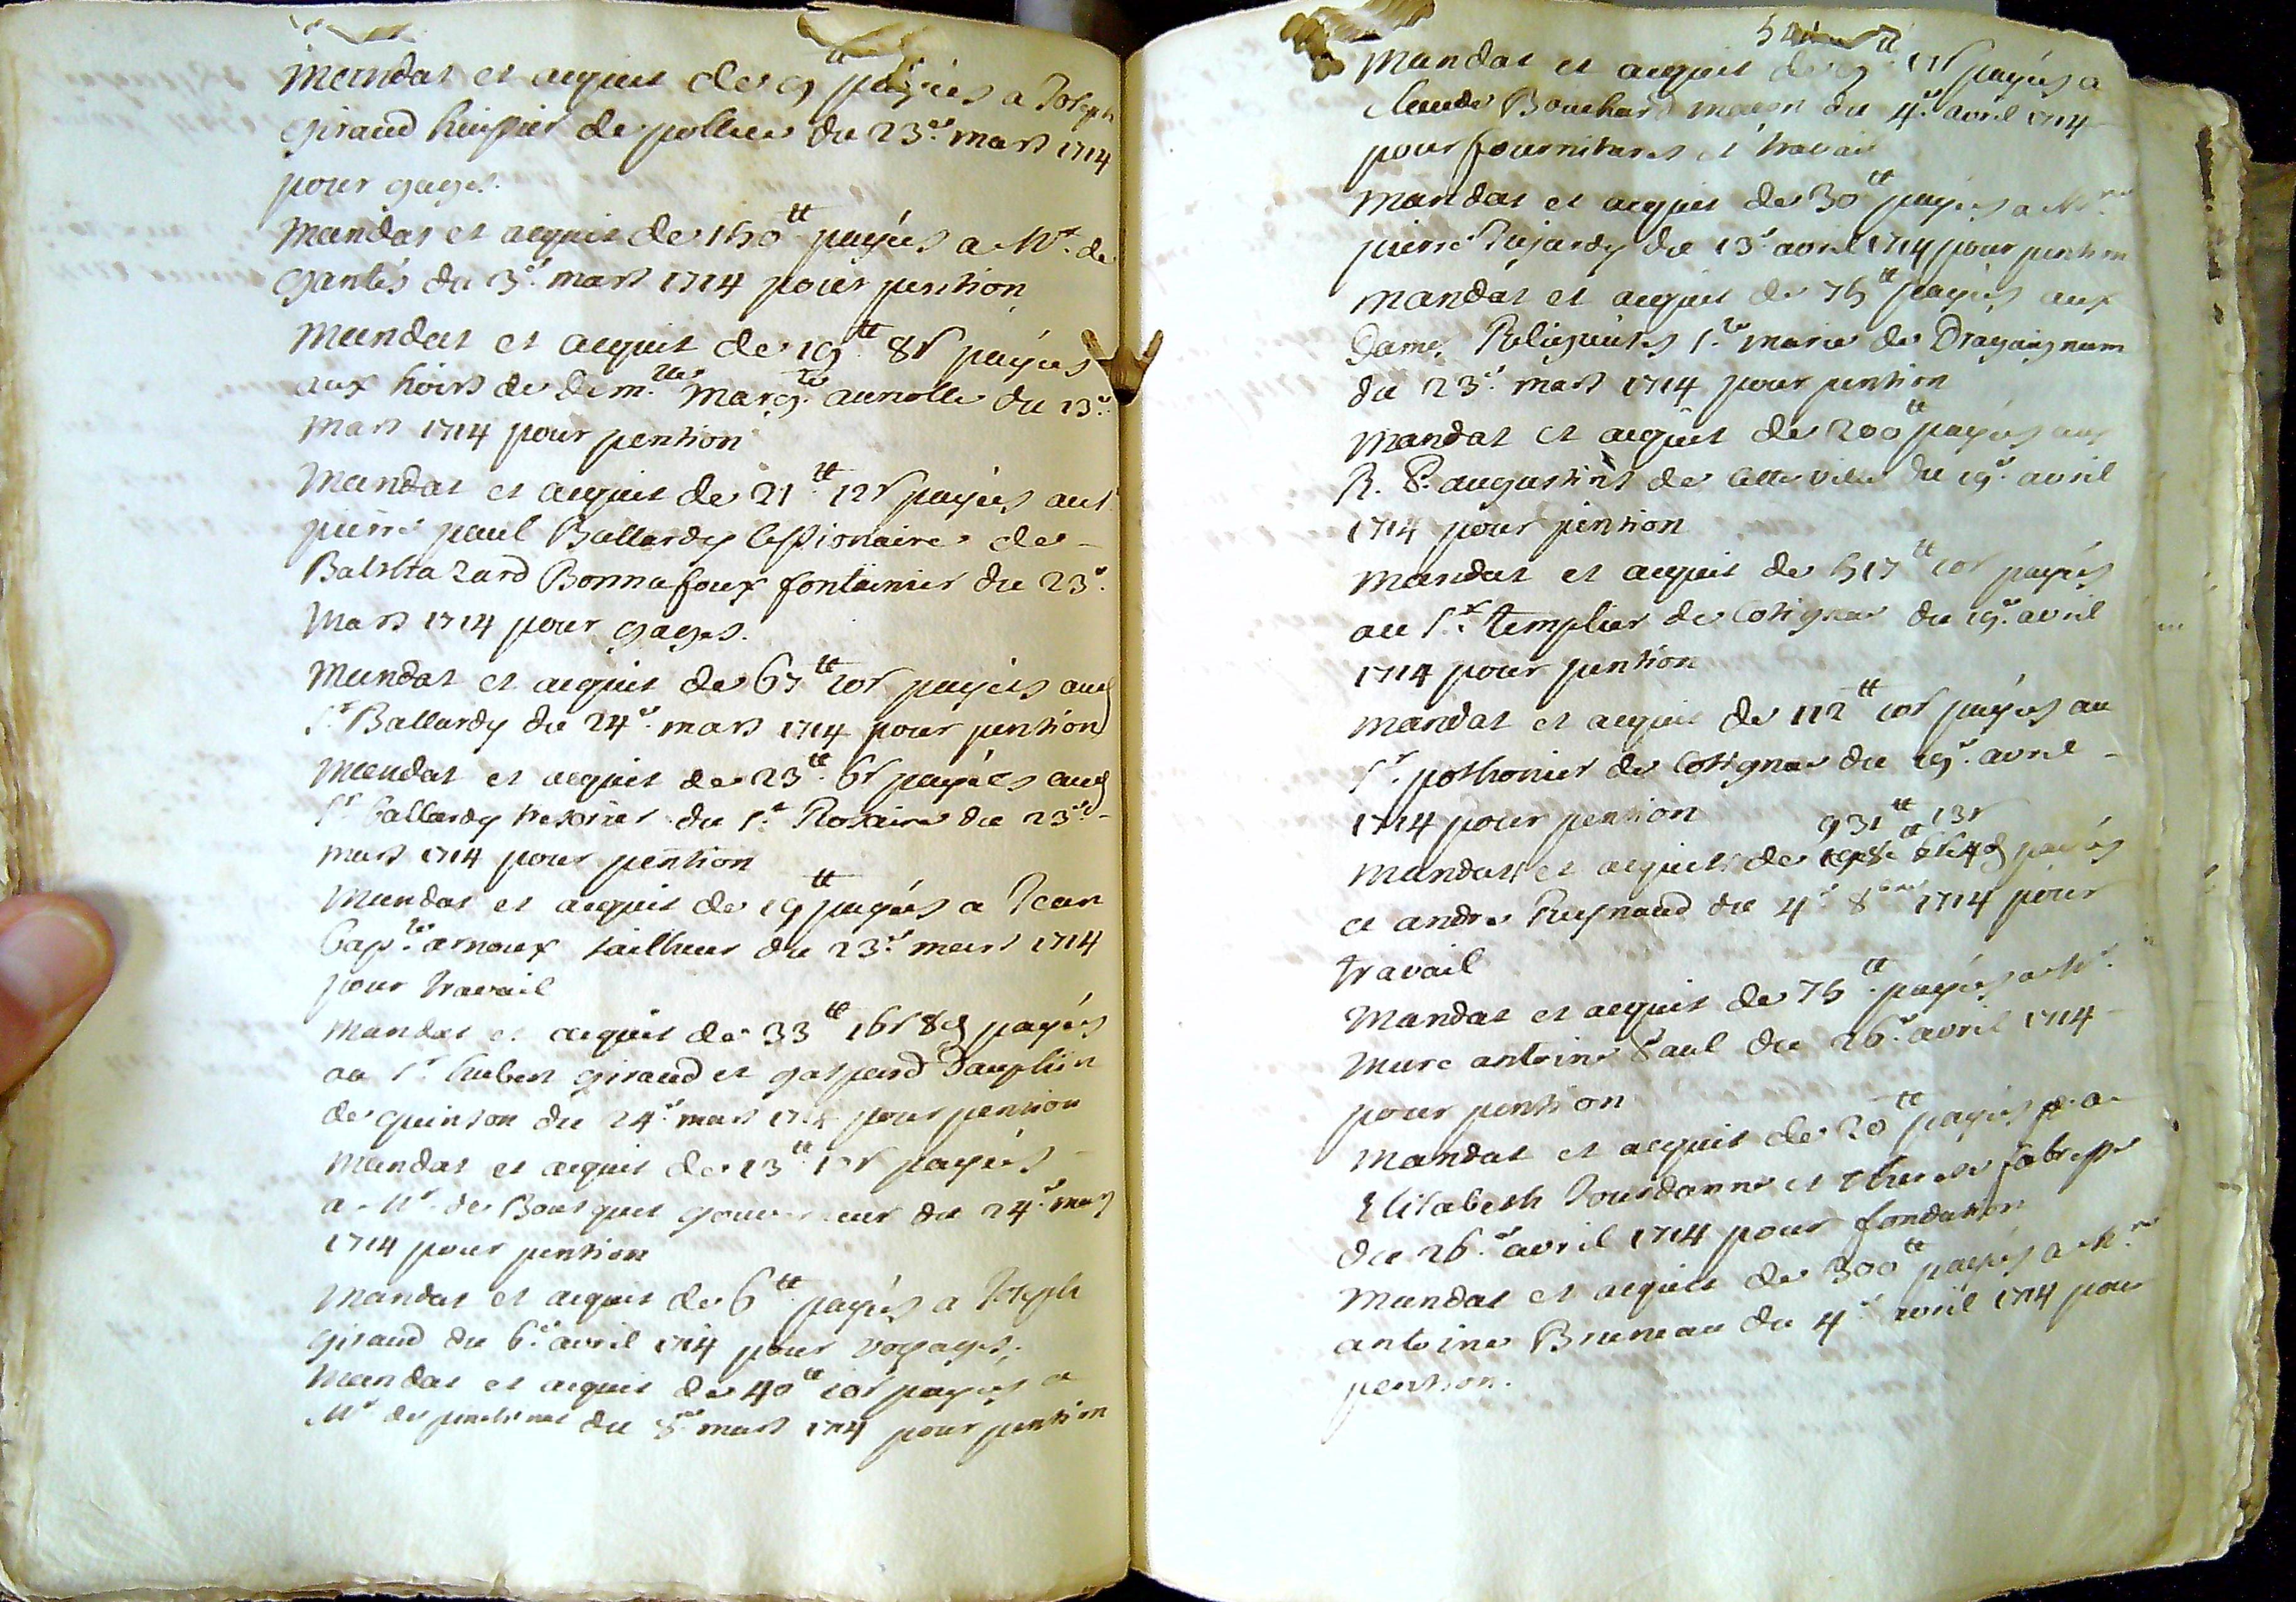 Mandat et acquit de 9 ₶ payées a Joseph
giraud huissier de pollice du 23e mars 1714
pour gages.
Mandat et acquit de 150 ₶ payées a Mr. de
gantés du 3e mars 1714 pour pention
Mandat et acquit de 19 ₶ 8s payées
aux hoirs de dem.lle Marg.te auriolle du 13e
mars 1714 pour pention
Mandat et acquit de 21 ₶ 12s payées au s.
pierre paul Ballardy cessionaire de
Balthazard Bonnafoux fontainier du 23e
Mars 1714 pour gages.
Mandat et acquit de 67 ₶ 10s payées aud
Sr Ballardy du 24e mars 1714 pour pention
Mandat et acquit de 23 ₶ 6s payées aud
Sr ballardy tresorier du St Rosaire du 23e
mars 1714 pour pention
Mandat et acquit de 19 ₶ payées a Jean
bap.te arnoux tailheur du 23e mars 1714
pour travail
Mandat et acquit de 33 ₶ 16s 8d payés
au Sr. hubert giraud et gaspard Dauphin
de quinson du 24e mars 1714 pour pention
Mandat et acquit de 13 ₶ payées
a Mr de Bousquet gouverneur du 24e mars
1714 pour pention
Mandat et acquit de 6 ₶ payées a Joseph
giraud du 6e avril 1714 pour voyages,
Mandat et acquit de 40 ₶ 10s payées a
Mr de du 8e mars 1714 pour pention
Mandat et acquit de 9 ₶ payées a
claude Bouchard masson du 4e avril 1714
pour fournitures et travail
Mandat et acquit de 30 ₶ payées a Mre
pierre Rajardy du 13e avril 1714 pour pention
Mandat et acquit de 75 ₶ payées aux
Dames Religieuses Ste marie de Draguignam
du 23e mars 1714 pour pention
Mandat et acquit de 200 ₶ payées aux
R. P. augustins de cette ville du 19e avril
1714 pour pention
Mandat et acquit de 517 ₶ 10s payées
au Sr. templier de Cotignac du 19e avril
1714 pour pention
Mandat et acquit de 112 ₶ 10s payées au
Sr. pothonier de Cotignac du 19e avril
1714 pour pention
931 ₶ 13s
Mandats et acquits de payées
a andre Reynaud du 4e 8bre 1714 pour
travail
Mandat et acquit de 75 ₶ payées a Mr.
Marc antoine Paul du 26e avril 1714
pour pention
Mandat et acquit de 20 ₶ payées a
Elisabeth Jourdanne et therese fabresse
du 26e avril 1714 pour fondation
Mandat et acquit de 300 ₶ payées a Mre
antoine Bruneau du 4e avril 1714 pour
pention.